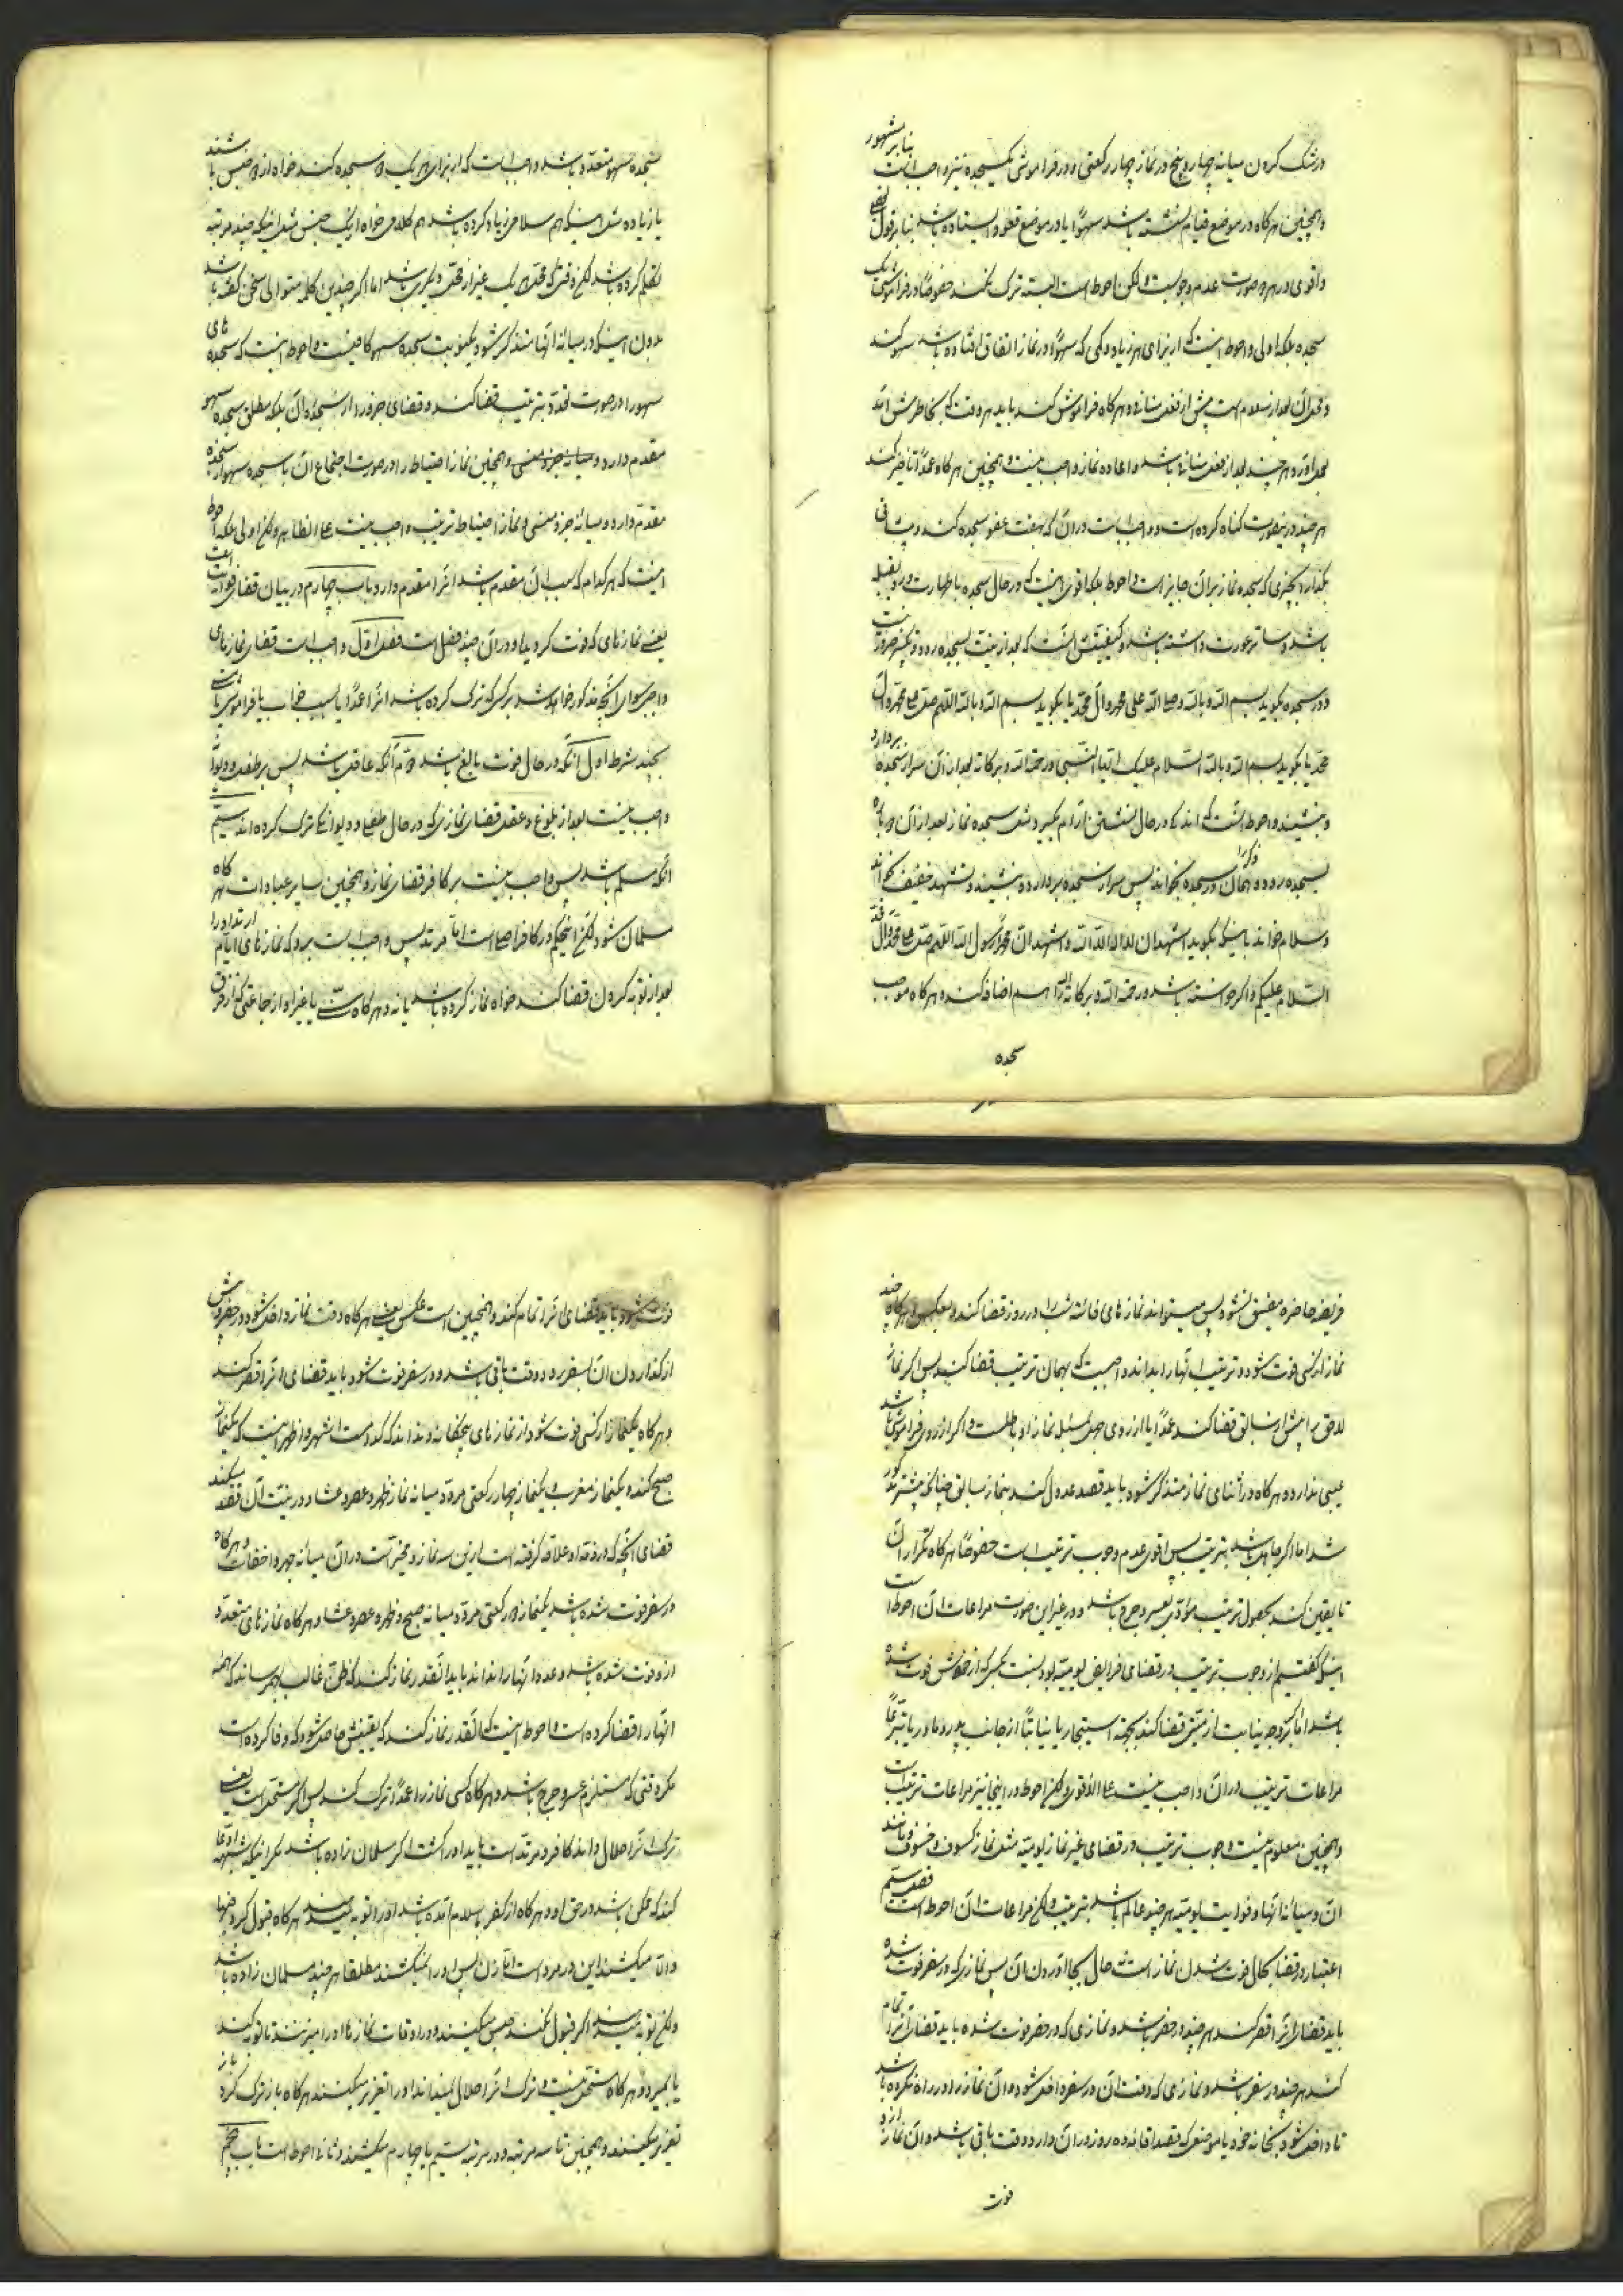 در شک کردن میانه چهار و پنج در نماز چهار رکعتی و در فراموشی یکسجده نیز واجب است بنا بر مشهور
و همچنین هرگاه در موضع قیام نشسته باشد سهوًا یا در موضع قعود ایستاده باشد بنا بر قول بعضی
و اقوی در هر دو صورت عدم وجوبست و لکن احوط است البته ترک نکند خصوصًا در فراموشی یک
سجده بلکه اولی و احوط اینست که از برای هر زیاد و کمی که سهوًا در نماز اتفاق افتاده باشد سهو کند
و محل آن بعد از سلام است پیش از فعل منافی و هرگاه فراموش کند باید هر وقت که بخاطرش آید
بعمل آورد هر چند بعد از فعل منافی باشد و اعاده نماز واجب نیست و همچنین هرگاه عمدًا تأخیر کند
هر چند در اینصورت گناه کرده است و واجب است در آن که بهفت عضو سجده کند و پیشانی
بگذارد بچیزی که سجده نماز بر آن جایز است و احوط بلکه اقوی اینست که در حال سجده با طهارت و رو بقبله
باشد و ساتر عورت داشته باشد و کیفیتش آنست که بعد از نیت بسجده رود و تکبیر ضرور نیست
و در سجده بگوید بسم الله و بالله و صلی الله علی محمد و آل محمد یا بگوید بسم الله و بالله اللهم صل علی محمد و آل
محمد یا بگوید بسم الله و بالله السلام علیک ایها النبی و رحمة الله و برکاته بعد از آن سر از سجده بردارد
و بنشیند و احوط آنست که اندکی در حال نشستن آرام بگیرد مثل سجده نماز بعد از آن دوباره
بسجده رود و همان ذکر را در سجده بخواند پس سر از سجده بردارد و بنشیند و تشهد خفیف بخواند
و سلام خواند باینکه بگوید اشهد ان لا اله الا الله و اشهد ان محمدًا رسول الله اللهم صل علی محمد و آل محمد
السلام علیکم و اگر خواسته باشد و رحمة الله و برکاته را هم اضافه کند و هرگاه موجب
سجده
سجده سهو متعدد باشد واجب است که از برای هر یک دو سجده کند خواه از دو جنس باشند
یا زیاده مثل اینکه هم سلامی زیاد کرده باشد هم کلامی خواه از یک جنس مثل اینکه چند مرتبه
تکلم کرده باشد لکن وقتی که محل هر یک غیر از محل دیگری باشد اما اگر چندین کلمه متوالی سخن گفته باشد
بدون اینکه در میانه آنها متذکر شود یکنوبت سجده سهو کافیست و احوط اینست که سجده های
سهو را در صورت تعدد بترتیب قضا کند و قضای جزو را از سجده آن بلکه مطلق سجده سهو
مقدم دارد و میانه جزء منسی و همچنین نماز احتیاط را در صورت اجتماع آن با سجده سهو از سجده
مقدم دارد و میانه جزء منسی و نماز احتیاط ترتیب واجب نیست علی الظاهر و لکن اولی بلکه احوط
اینست که هر کدام که سبب آن مقدم باشد آنرا مقدم دارد باب چهارم در بیان قضای فوایت است
یعنی نمازهای که فوت گردیده و در آن چند فصل است فصل اول واجب است قضای نمازهای
واجبی سوای آنچه مذکور خواهد شد بر کسی که ترک کرده باشد آنرا عمدًا یا بسبب خواب یا فراموشی
بچند شرط اول آنکه در حال فوت بالغ باشد دوم آنکه عاقل باشد پس بر طفل و دیوانه
واجب نیست بعد از بلوغ و عقل قضای نمازی که در حال طفلی و دیوانگی ترک کرده اند سیم
آنکه مسلم باشد پس واجب نیست بر کافر قضای نماز و همچنین سایر عبادات هرگاه
مسلمان شود لکن این حکم در کافر اصلی است اما مرتد پس واجب است بر او که نمازهای ایام ارتداد را
بعد از توبه کردن قضا کند خواه نماز کرده باشد یا نه و هرگاه سنی یا غیر او از جماعتی که از فرق
فریضه حاضره مضیق نشود پس میتواند نمازهای فائته شب را در روز قضا کند و بعکس هرگاه چند
نماز از کسی فوت شود و ترتیب آنها را بداند واجبست که بهمان ترتیب قضا کند پس اگر نماز
لاحق را پیش از سابق قضا کند عمدًا یا از روی جهل بمسئله نماز او باطلست و اگر از روی فراموشی باشد
عیبی ندارد و هرگاه در اثنای نماز متذکر شود باید قصد عدول کند بنماز سابق چنانکه پیشتر مذکور
شد اما اگر جاهل باشد بترتیب پس اقوی عدم وجوب ترتیب است خصوصًا هرگاه تکرار آن
تا یقین کند بحصول ترتیب مؤدی بعسر و حرج باشد و در غیر این صورت مراعات آن احوط است
اینکه گفتیم از وجوب ترتیب در قضای فرایض یومیه بود نسبت بکسی که از خودش فوت شده
باشد اما اگر بر وجه نیابت از میتی قضا کند بجهة استیجار یا نیابتًا از جانب پدر و مادر یا تبرعًا
مراعات ترتیب در آن واجب نیست علی الاقوی و لکن احوط در اینجا نیز مراعات ترتیب است
و همچنین معلوم نیست وجوب ترتیب در قضای غیر نماز یومیه مثل نماز کسوف و خسوف و مانند
آن و میانه آنها و فوایت یومیه هر چند عالم باشد بترتیب و لکن مراعات آن احوط است فصل سیم
اعتبار در قضا بحال فوت شدن نماز است نه حال بجا آوردن آن پس نمازی که در سفر فوت شده
باید قضای آنرا قصر کند هر چند در حضر باشد و نمازی که در حضر فوت شده باید قضای آنرا تمام
کند هر چند در سفر باشد و نمازی که وقت آن در سفر داخل شود و آن نماز را در راه نکرده باشد
تا داخل شود بخانه خود یا موضعی که قصد اقامه ده روز در آن دارد و وقت باقی باشد و آن نماز از او
فوت
فوت شود باید قضای آنرا تمام کند و همچنین است عکس یعنی هرگاه وقت نماز داخل شود در حضر و پیش
از گذاردن آن بسفر رود و وقت باقی باشد و در سفر فوت شود باید قضای آنرا قصر کند
و هرگاه یکنماز از کسی فوت شود از نمازهای پنجگانه و نداند که کدامست اشهر و اظهر اینست که یکنماز
صبح کند و یکنماز مغرب و یکنماز چهار رکعتی مردد میانه نماز ظهر و عصر و عشا و در نیت آن قصد میکند
قضای آنچه که در ذمه او علاقه گرفته است از این سه نماز و مخیر است در آن میانه جهر و اخفات و هرگاه
در سفر فوت شده باشد یکنماز دو رکعتی مردد میانه صبح و ظهر و عصر و عشا و هرگاه نمازهای متعدد
از او فوت شده باشد و عدد آنها را نداند باید آنقدر نماز کند که ظن غالب بهم رساند که همه
آنها را قضا کرده است و احوط اینست که آنقدر نماز کند که یقینش حاصل شود که وفا کرده است
مگر وقتی که مستلزم عسر و حرج باشد و هرگاه کسی نماز را عمدًا ترک کند پس اگر مستحل است یعنی
ترک آنرا حلال داند کافر و مرتد است باید او را کشت اگر مسلمان زاده باشد مگر اینکه ادعای شبهه
کند که ممکن باشد در حق او و هرگاه از کفر باسلام آمده باشد او را توبه میدهند هرگاه قبول کرد فبها
والا میکشند این در مرد است اما زن پس او را نمیکشند مطلقا هر چند مسلمان زاده باشد
و لکن توبه میدهند اگر قبول نکند حبس میکنند و در اوقات نمازها او را میزنند تا توبه کند
یا بمیرد و هرگاه مستحل نیست و ترک آنرا حلال نمیداند او را تعزیر میکنند هرگاه باز ترک کرد باز
تعزیر میکنند و همچنین تا سه مرتبه و در مرتبه سیم یا چهارم میکشند و ثانی احوط است باب پنجم